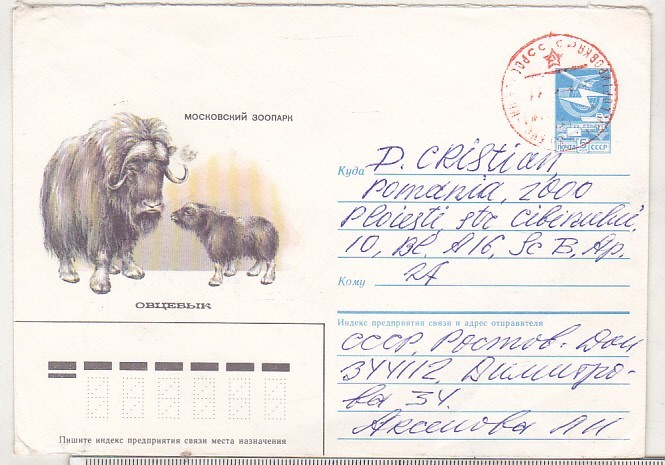 МОСКОВСКИЙ ЗООПАРК
ОВЦЕБЫК
ПОЧТА СССР
Куда D. Cristian,
România, 2000
Ploiești, str Cibinului,
10, Bl. A16, Sc B, Ap.
Кому 24
Индекс предприятия связи и адрес отправителя
СССР, Ростов-Дон
344112, Димитро-
ва 34.
Аксенова
Пишите индекс предприятия связи места назначения